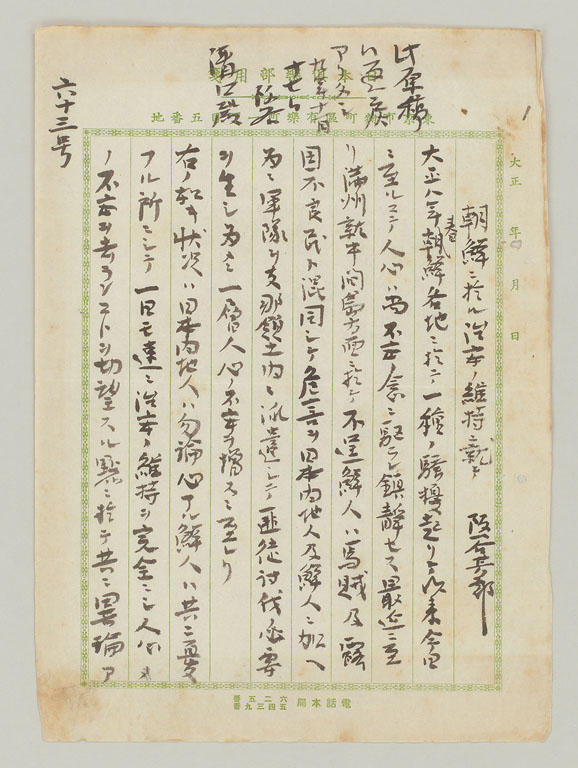 朝鮮ニ於ル治安ノ維持ニ就テ
阪谷芳郎
大正八年春朝鮮各地ニ於テ一種ノ騒擾起リテ以来今日
ニ至ルマテ人心ハ尚不安ノ念ニ駆ラレ鎮静セス最近ニ至
リ満州就中間島方面ニ於テ不逞鮮人ハ馬賊及露
国不良民ト混同シテ危害ヲ日本内地人及鮮人ニ加ヘ
為ニ軍隊ヲ支那領土内ニ派遣シテ匪徒討伐ノ必要
ヲ生シ為メニ一層人心ノ不安ヲ増スニ至レリ
右ノ如キ状況ハ日本内地人ハ勿論心アル鮮人ハ共ニ憂
フル所ニシテ一日モ速ニ治安ノ維持ヲ完全ニシ人心
ノ不安ヲ去ランコトヲ切望スル点ニ於テ共ニ異論ア
六十三号
大正 年 月 日
電話本局